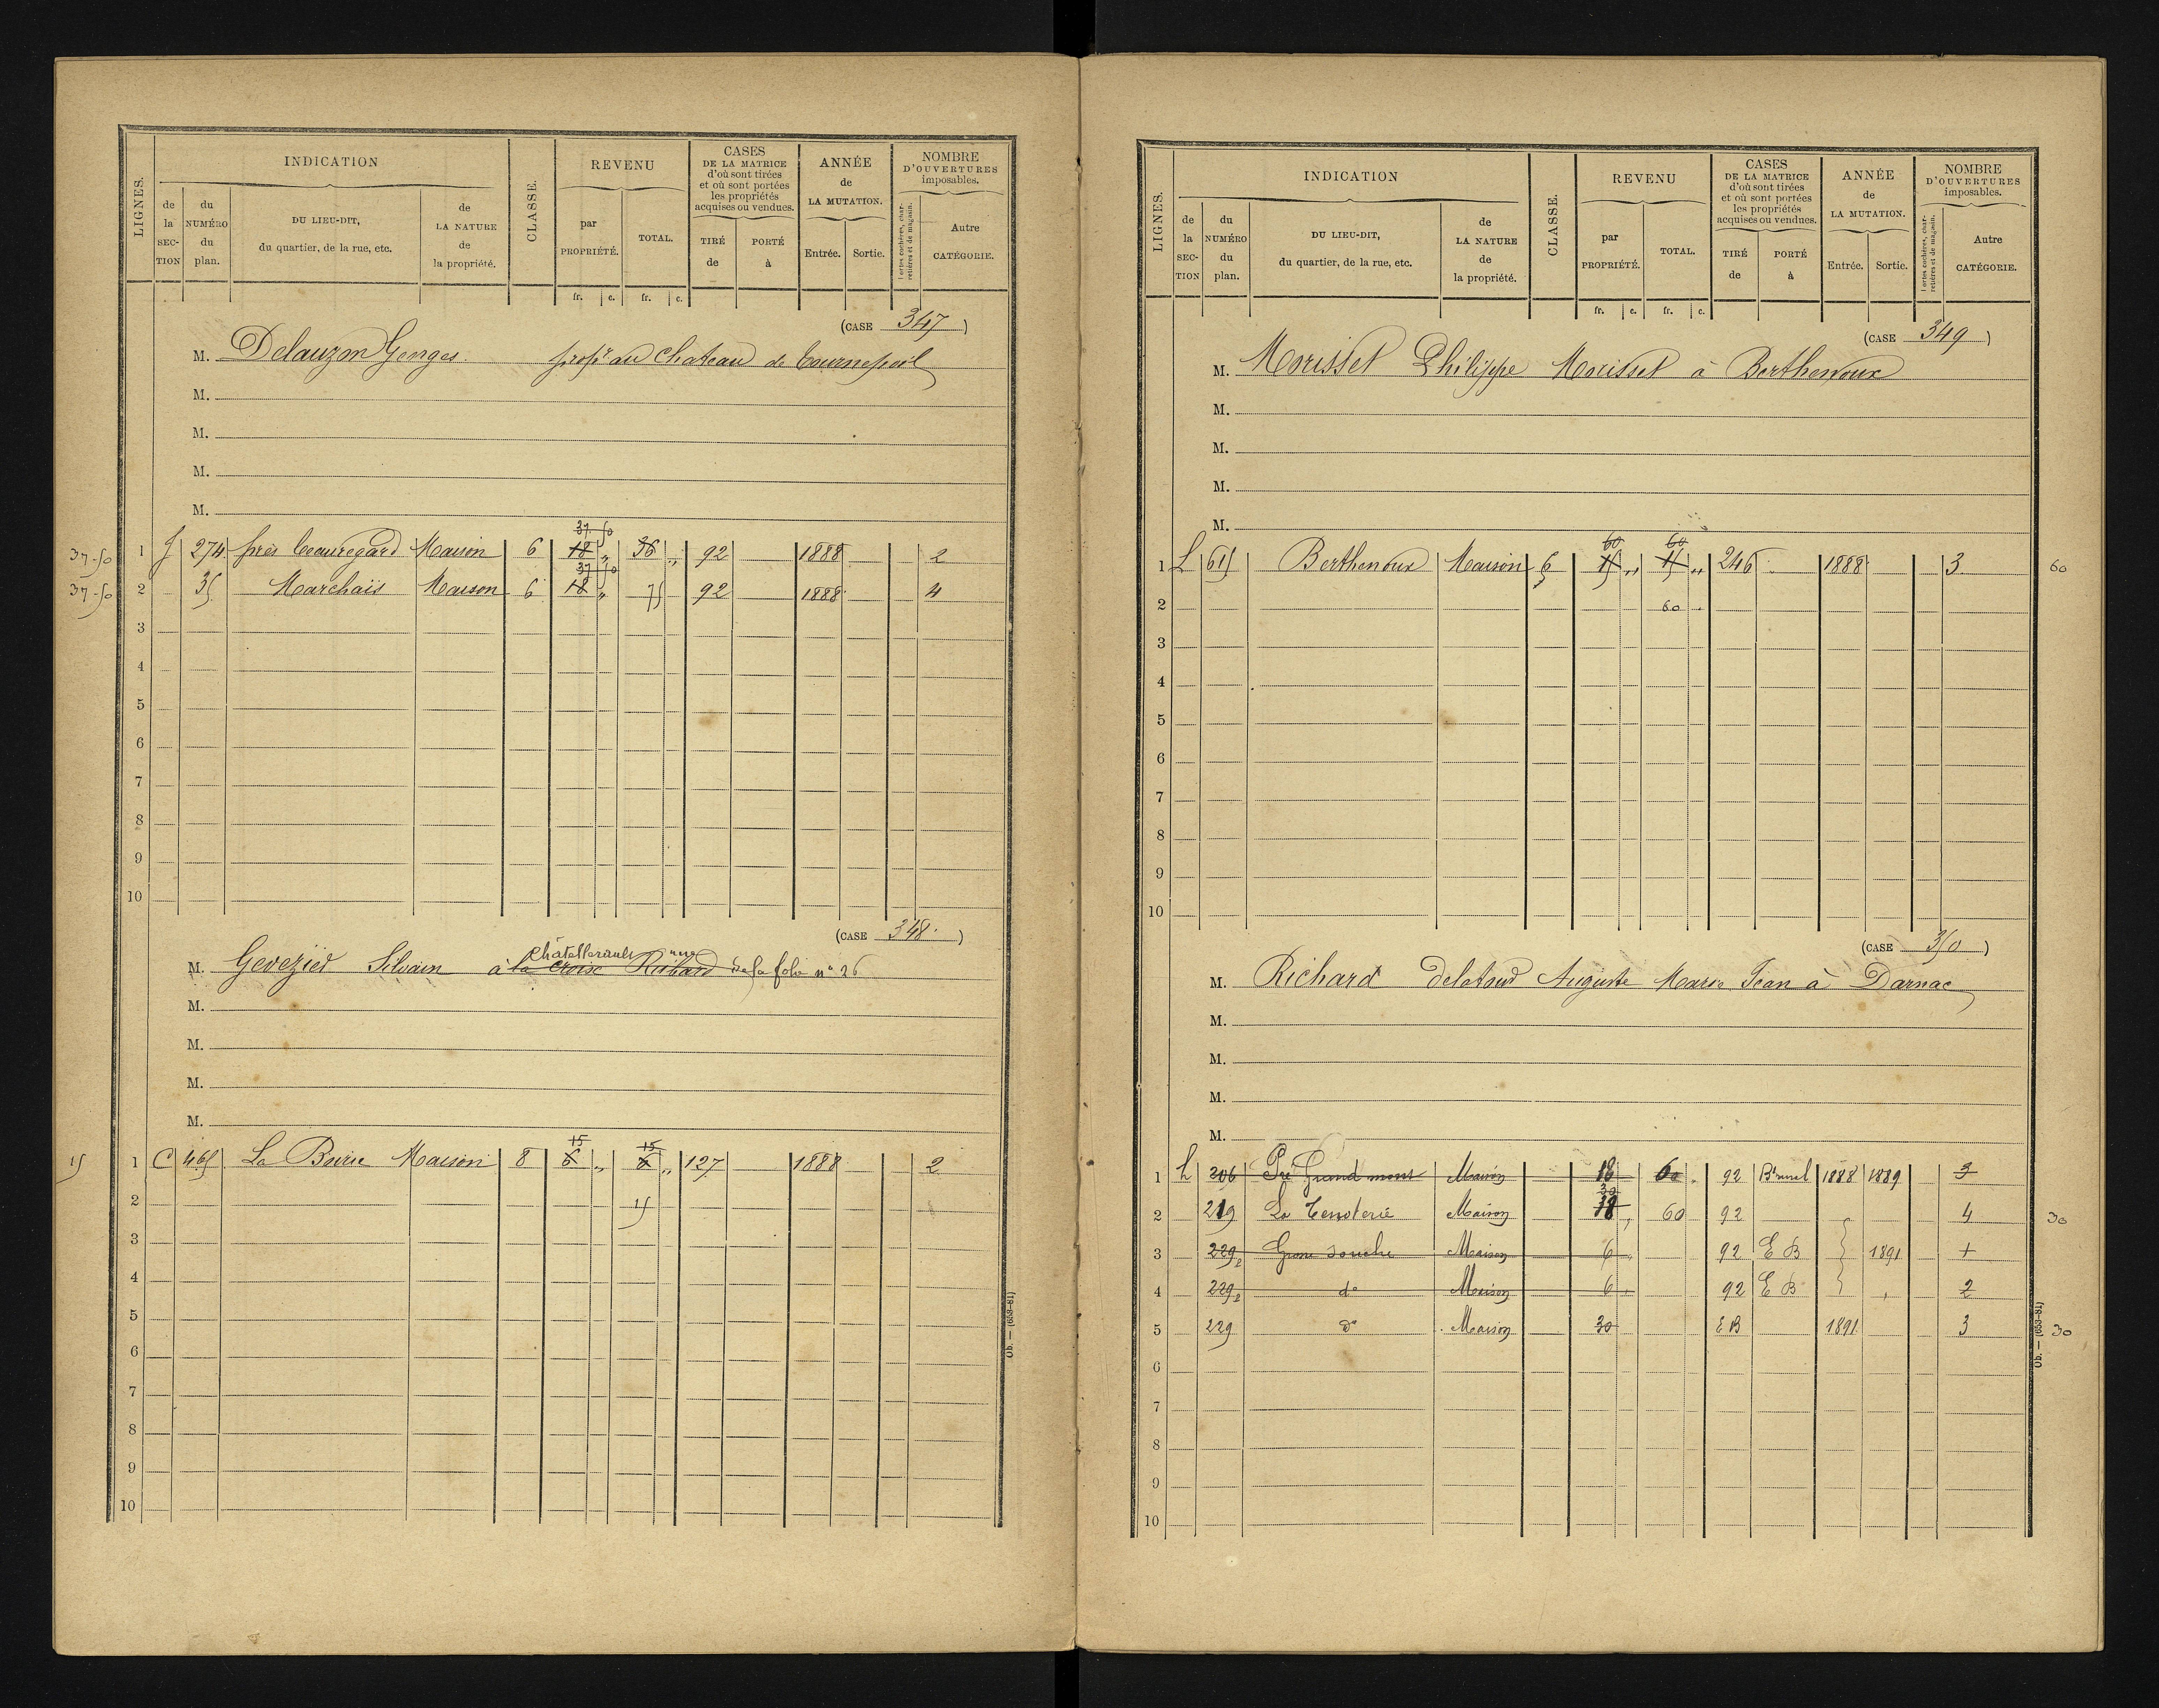 LIGNES.
INDICATION
de la SEC-TION
du NUMÉRO du plan.
DU LIEU-DIT, du quartier, de la rue, etc.
de LA NATURE de la propriété.
CLASSE.
REVENU
par PROPRIÉTÉ.
TOTAL.
fr. c. fr. c.
CASES DE LA MATRICE d'où sont tirées et où sont portées les propriétés acquises ou vendues.
TIRÉ de
PORTÉ à
ANNÉE de LA MUTATION.
Entrée.
Sortie.
NOMBRE D'OUVERTURES imposables.
Portes cochères, charretières et de magasin.
Autre CATÉGORIE.
(CASE 347)
M. Delauzon Georges propre au Chateau de
M.
M.
M.
M.
37-50 1 J 274 près Beauregard Maison 6 18 37 50 36 92 1888 2
37-50 2 35 Marchais Maison 6 18 37 50 75 92 1888 4
3
4
5
6
7
8
9
10
(CASE 348)
M. Silvain à la croix Richard Châtellerault rue de la folie n° 26
M.
M.
M.
M.
15 1 C 465 La Maison 8 6 15 6 15 127 1888 2
2 15
3
4
5
6
7
8
9
10
Ob. — (653-81)
LIGNES.
INDICATION
de la SEC-TION
du NUMÉRO du plan.
DU LIEU-DIT, du quartier, de la rue, etc.
de LA NATURE de la propriété.
CLASSE.
REVENU
par PROPRIÉTÉ.
TOTAL.
fr. c. fr. c.
CASES DE LA MATRICE d'où sont tirées et où sont portées les propriétés acquises ou vendues.
TIRÉ de
PORTÉ à
ANNÉE de LA MUTATION.
Entrée.
Sortie.
NOMBRE D'OUVERTURES imposables.
Portes cochères, charretières et de magasin.
Autre CATÉGORIE.
(CASE 349)
M. Morisset Philippe Morisset à Berthenoux
M.
M.
M.
M.
1 L 615 Berthenoux Maison 6 15 60 15 60 246 1888 3 60
2 60
3
4
5
6
7
8
9
10
(CASE 350)
M. Richard delatour Auguste Marie Jean à Darnac
M.
M.
M.
M.
1 L 206 Pré Grand mont Maison 18 60 92 1888 1889 3
2 219 La Maison 18 30 60 92 4 30
3 229 2 Maison 6 92 E B 1891 1
4 229 2 do Maison 6 92 E B 2
5 229 do Maison 30 E B 1891 3 30
6
7
8
9
10
Ob. — (653-81)